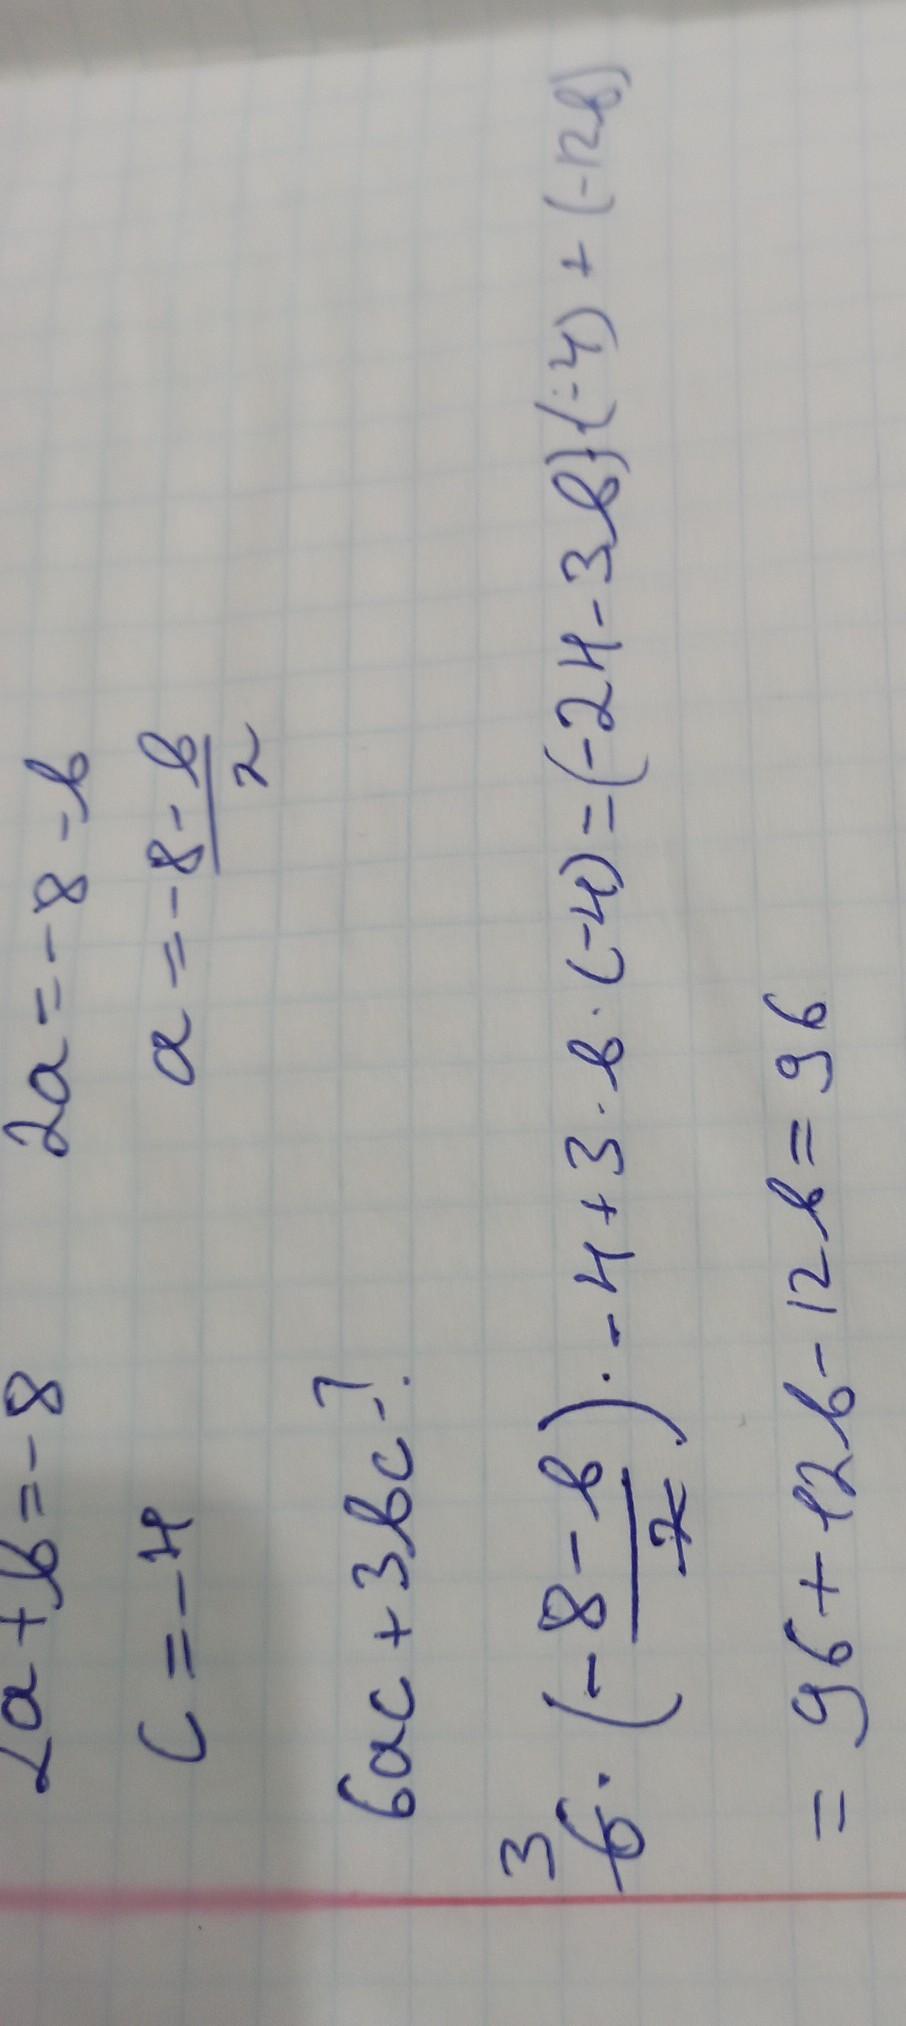 2a+b=-8 2a=-8-b
c=-4 a=-8-b/2
6ac+3bc-?
3
6·(-8-b/2)·-4+3·b·(-4)=(-24-3b)(-4)+(-12b)
=96+12b-12b=96